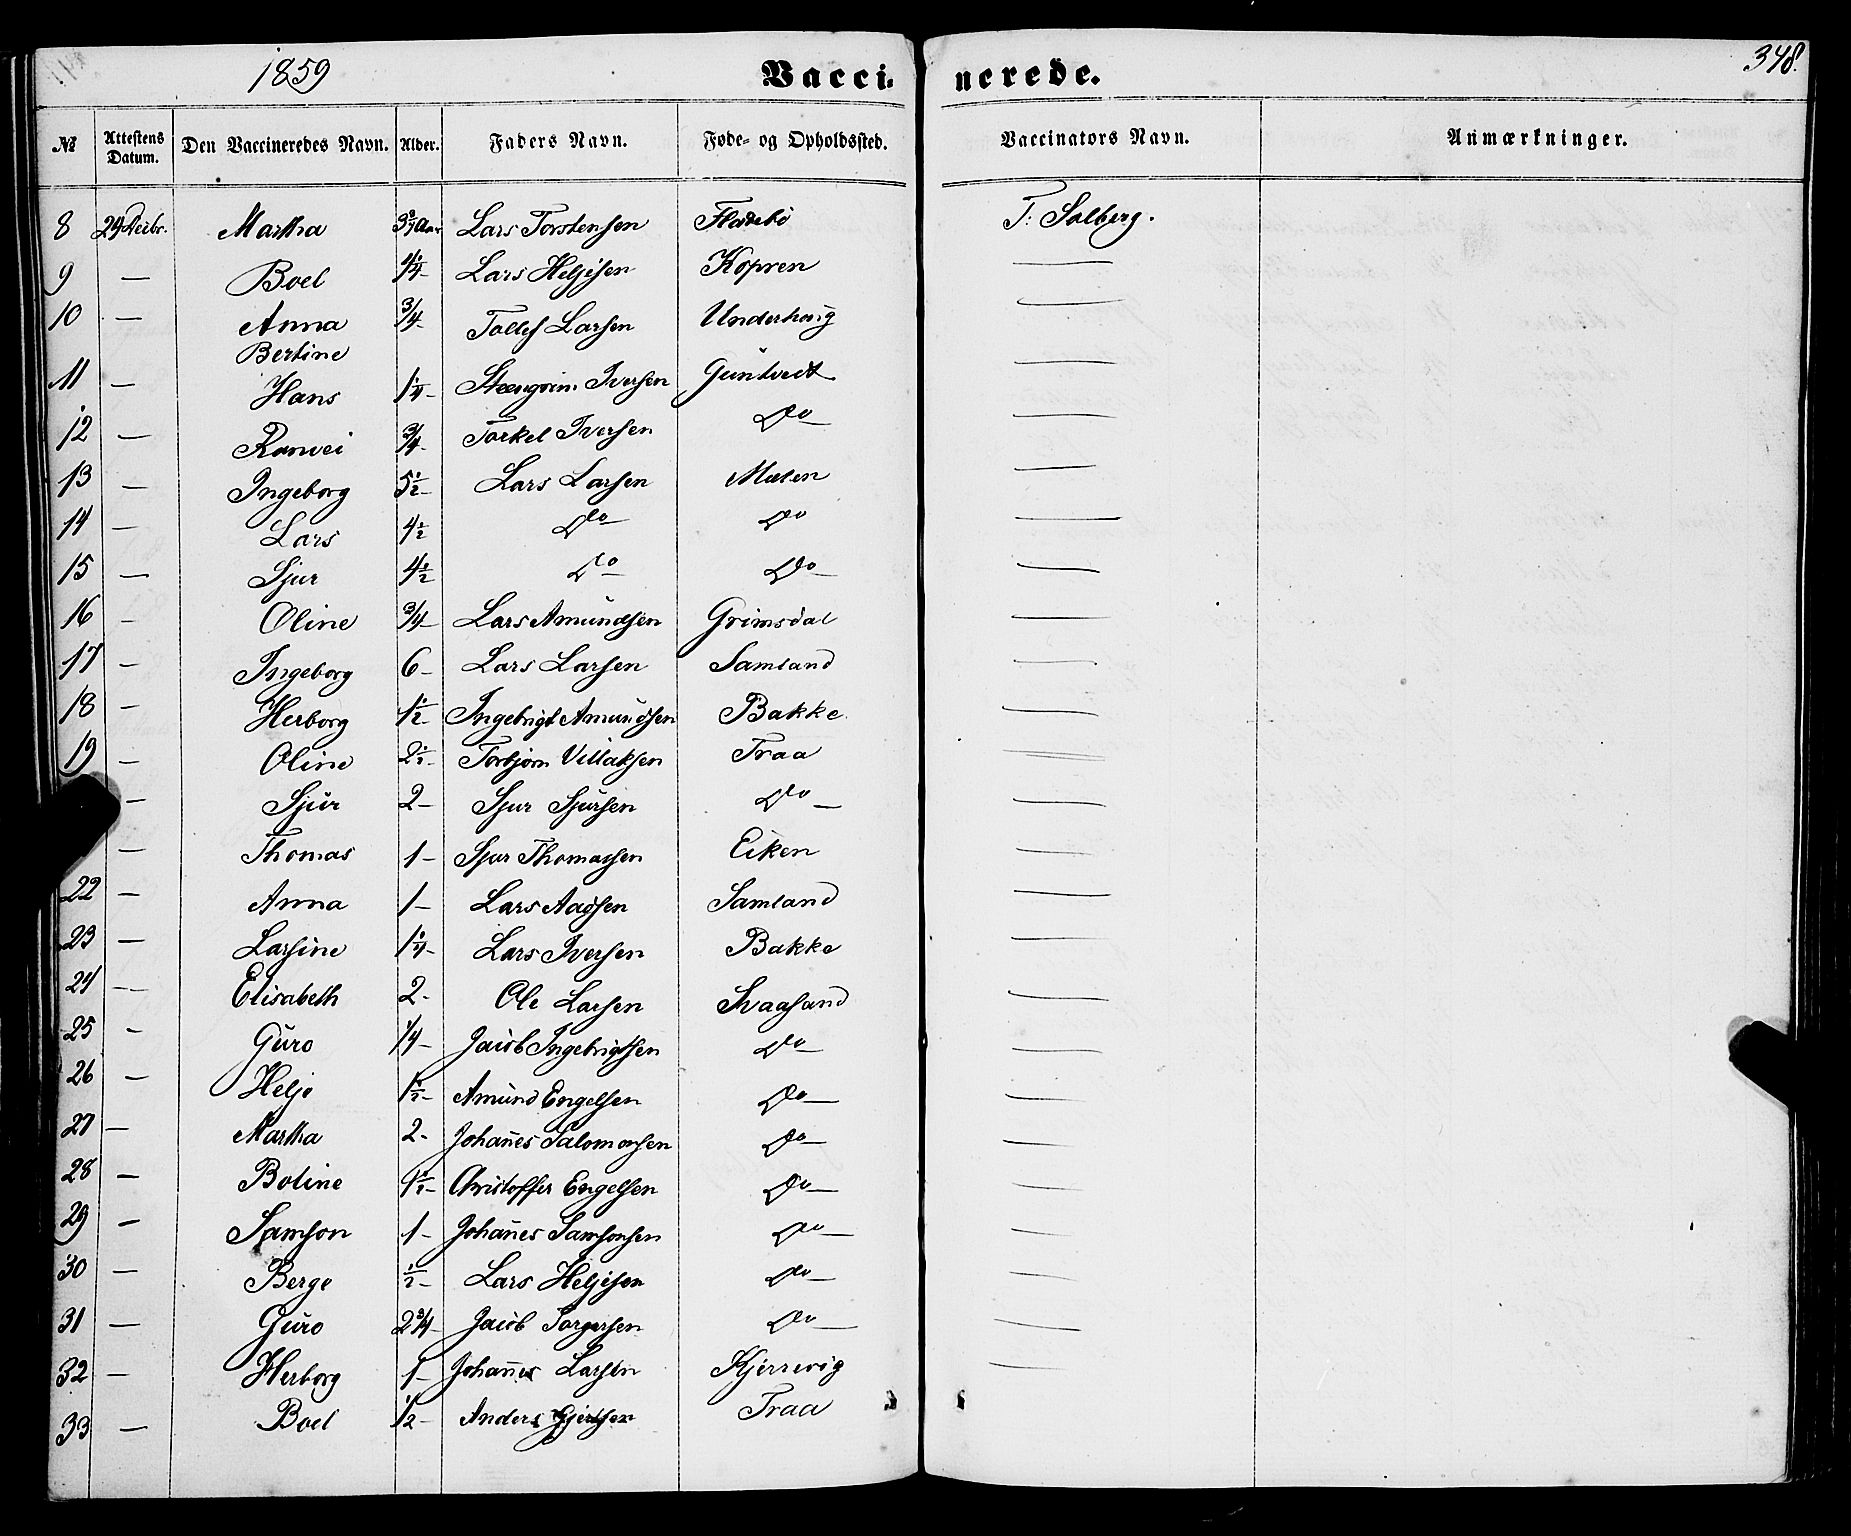 1859 Vaccinerede. 348.
№ Attestens Datum. Den Vaccineredes Navn. Alder. Faders Navn. Føde- og Opholdssted. Vaccinators Navn. Anmærkninger.
8 29 Decbr. Martha Aar Lars Torstensen Fladebö T: Solberg.
9 — Boel 1¼ - Lars Heljesen Kopren —
10 — Anna Bertine ¾ - Tollef Larsen Underhaug —
11 — Hans 1¼ - Steengrim Iversen Guntvedt —
12 — Ranvei ¾ - Torkel Iversen Do —
13 — Ingeborg 5½ - Lars Larsen Malen —
14 — Lars 4½ Do Do —
15 — Sjur 4½ Do Do —
16 - Oline ¾ - Lars Amundsen Grimsdal —
17 — Ingeborg 6 - Lars Larsen Samland —
18 — Herborg 1½ - Ingebrigt Amundsen Bakke —
19 — Oline 2½ - Torbjörn Villaksen Traa —
— Sjur 2 - Sjur Sjursen Do —
— Thomas 1 - Sjur Thomassen Eiken —
22 — Anna 1 - Lars Aadsen Samland —
23 — Larsine 1¼ - Lars Iversen Bakke —
24 — Elisabeth 2 - Ole Larsen Svaasand —
25 - Guro ¼ - Jacob Ingebrigtsen Do —
26 — Helje 1½ - Amund Engelsen Do —
27 — Martha 2 - Johañes Salomonsen Do —
28 — Boline - Christoffer Engelsen Do —
29 — Samson 1 - Johañes Samsonsen Do —
30 — Berge ½ - Lars Heljesen Do —
31 — Guro 2¾ - Jacob Torgersen Do —
32 — Herborg 1 - Johañes Larsen Kjerrevig —
33 — Boel ½ - Anders Gjertsen Traa